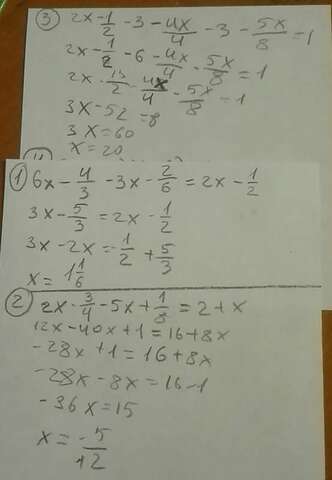 ③ 2x - 1/2 - 3 - 4x/4 - 3 - 5x/8 = 1
2x - 1/2 - 6 - 4x/4 - 5x/8 = 1
2x - 13/2 - 4x/4 - 5x/8 = 1
3x - 52 = 8
3x = 60
x = 20
① 6x - 4/3 - 3x - 2/6 = 2x - 1/2
3x - 5/3 = 2x - 1/2
3x - 2x = -1/2 + 5/3
x = 1 1/6
② 2x - 3/4 - 5x + 1/8 = 2 + x
12x - 40x + 1 = 16 + 8x
-28x + 1 = 16 + 8x
-28x - 8x = 16 - 1
-36x = 15
x = -5/12